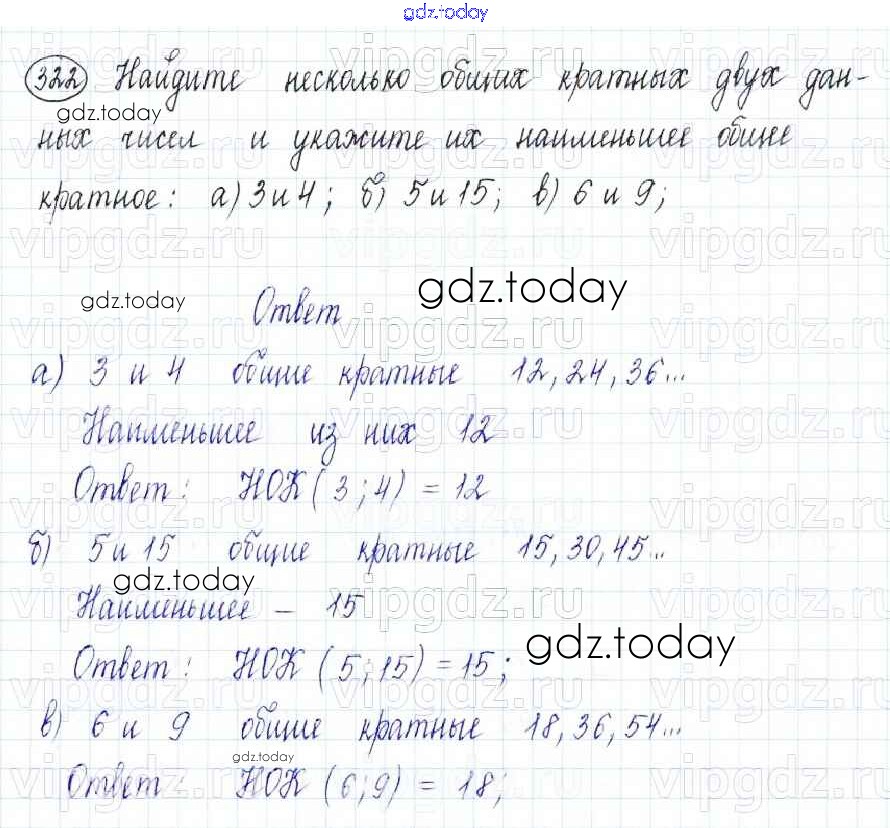 gdz.today
322 Найдите несколько общих кратных двух дан-
gdz.today
ных чисел и укажите их наименьшее общее
кратное: а) 3 и 4; б) 5 и 15; в) 6 и 9;
gdz.today
gdz.today
Ответ
а) 3 и 4 общие кратные 12, 24, 36...
Наименьшее из них 12
Ответ: НОК (3; 4) = 12
б) 5 и 15 общие кратные 15, 30, 45...
gdz.today
Наименьшее – 15
gdz.today
Ответ: НОК (5; 15) = 15;
в) 6 и 9 общие кратные 18, 36, 54...
gdz.today
Ответ: НОК (6; 9) = 18;
vipgdz.ru vipgdz.ru vipgdz.ru